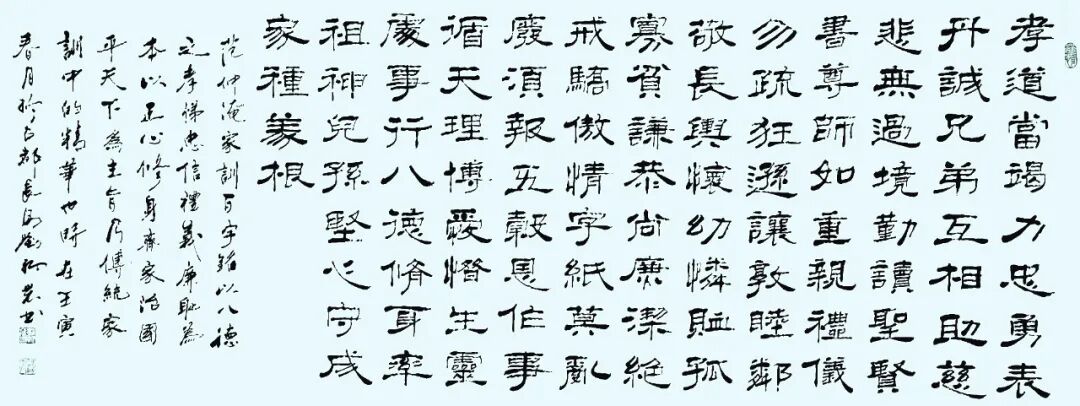 孝道當竭力忠勇表
丹誠兄弟互相助慈
悲無過境勤讀聖賢
書尊師如重親禮儀
勿疏狂遜讓敦睦鄰
敬長與懷幼憐恤孤
寡貧謙恭尚廉潔絕
戒驕傲情字紙莫亂
廢須報五穀恩作事
循天理博愛惜生靈
處事行八德脩身率
祖神兒孫堅心守成
家種善根
范仲淹家訓百字銘以八德
之孝悌忠信禮義廉恥為
本以正心修身齊家治國
平天下為主旨乃傳統家
訓中的精華也時在壬寅
春月於古都長安書